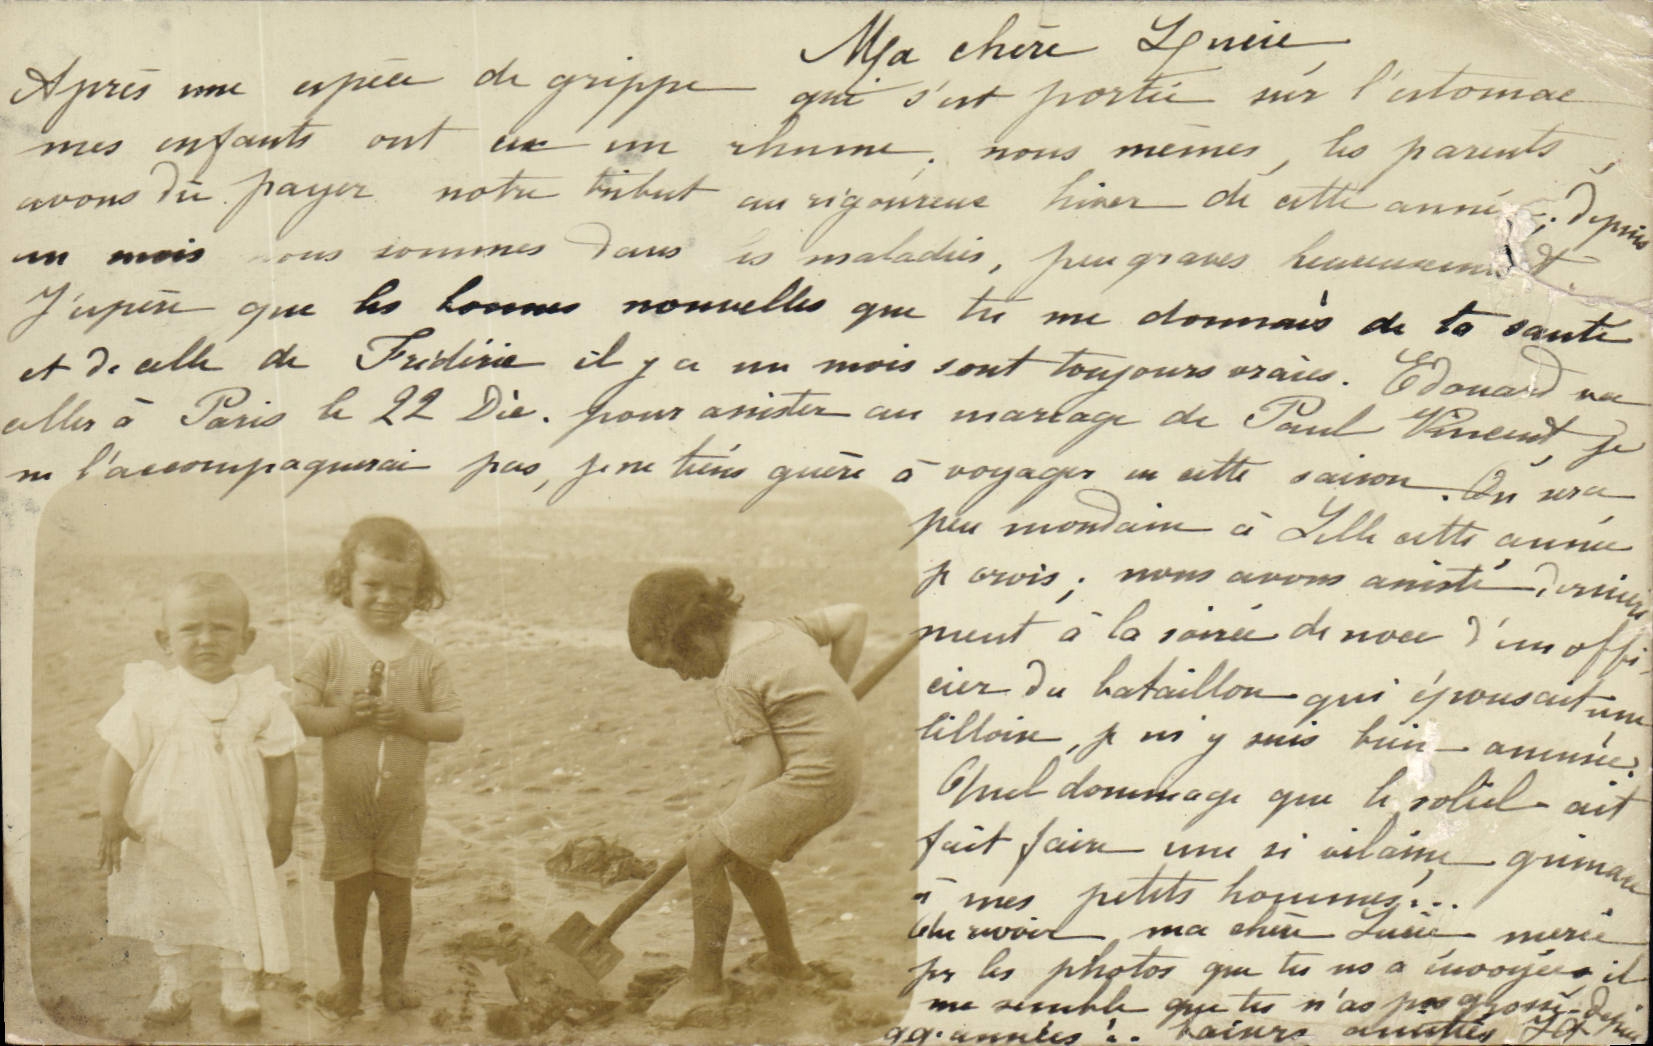 Ma chère Lucie
Après une espèce de grippe qui s'est portée sur l'estomac
mes enfants ont eu un rhume. nous mêmes, les parents,
avons dû payer notre tribut au rigoureux hiver de cette année; depuis
un mois nous sommes dans les maladies, peu graves heureusement
J'espère que les bonnes nouvelles que tu me donnais de ta santé
et de celle de Frédéric il y a un mois sont toujours vraies. Edouard va
aller à Paris le 22 Déc. pour assister au mariage de Paul Vincent, je
ne l'accompagnerai pas, je ne tiens guère à voyager en cette saison. On sera
peu mondain à Lille cette année
je crois; nous avons assisté dernière
ment à la soirée de noce d'un offi
cier du bataillon qui épousait une
lilloise, je m'y suis bien amusée.
Quel dommage que le soleil ait
fait faire une si vilaine grimace
à mes petits hommes!...
Au revoir ma chère Lucie merci
pr les photos que tu ns a envoyées, il
me semble que tu n'as pas grossi depuis
qq. années!.. baisers amitiés